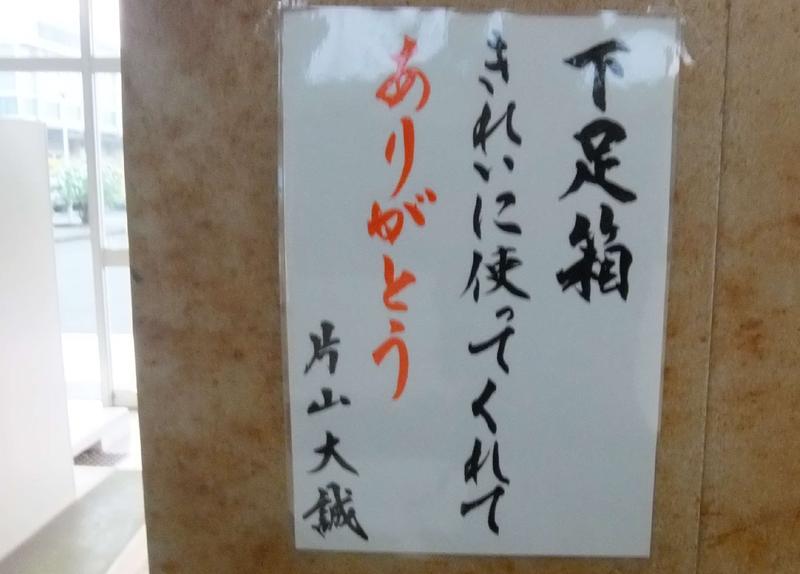 下足箱
きれいに使ってくれて
ありがとう
片山大誠